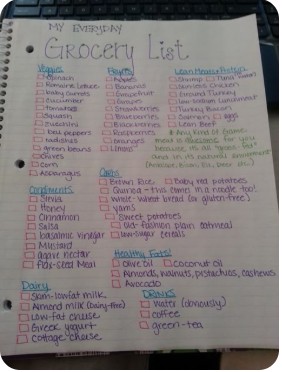 MY EVERYDAY
GROCERY LIST
Veggies
Spinach
Romaine lettuce
baby carrots
cucumber
tomatoes
squash
zucchini
bell peppers
radishes
green beans
chives
corn
Asparagus
Fruits
Apples
Bananas
Grapefruit
Grapes
Strawberries
Blueberries
Blackberries
Raspberries
oranges
Limes
Lean Meats/Protein
Shrimp
Tuna
Skinless Chicken
Ground Turkey
low-sodium Lunchmeat
Turkey Bacon
Salmon
eggs
Lean Beef
* Any kind of game
meat is awesome for you
because it's
and in its natural environment
Condiments
Stevia
Honey
Cinnamon
Salsa
balsamic vinegar
Mustard
agave nectar
flax-seed Meal
Carbs
Brown Rice
Baby red potatoes
Quinoa - this comes in a noodle too!
whole-wheat bread (or gluten-free)
yams
Sweet potatoes
old-fashion plain oatmeal
low-sugar cereals
Healthy Fats!
olive oil
Coconut oil
Almonds, walnuts, pistachios, cashews
Avocado
Dairy
Skim-lowfat milk
Almond milk (Dairy-free)
Low-fat cheese
Greek yogurt
cottage cheese
DRINKS
Water (obviously)
coffee
green-tea